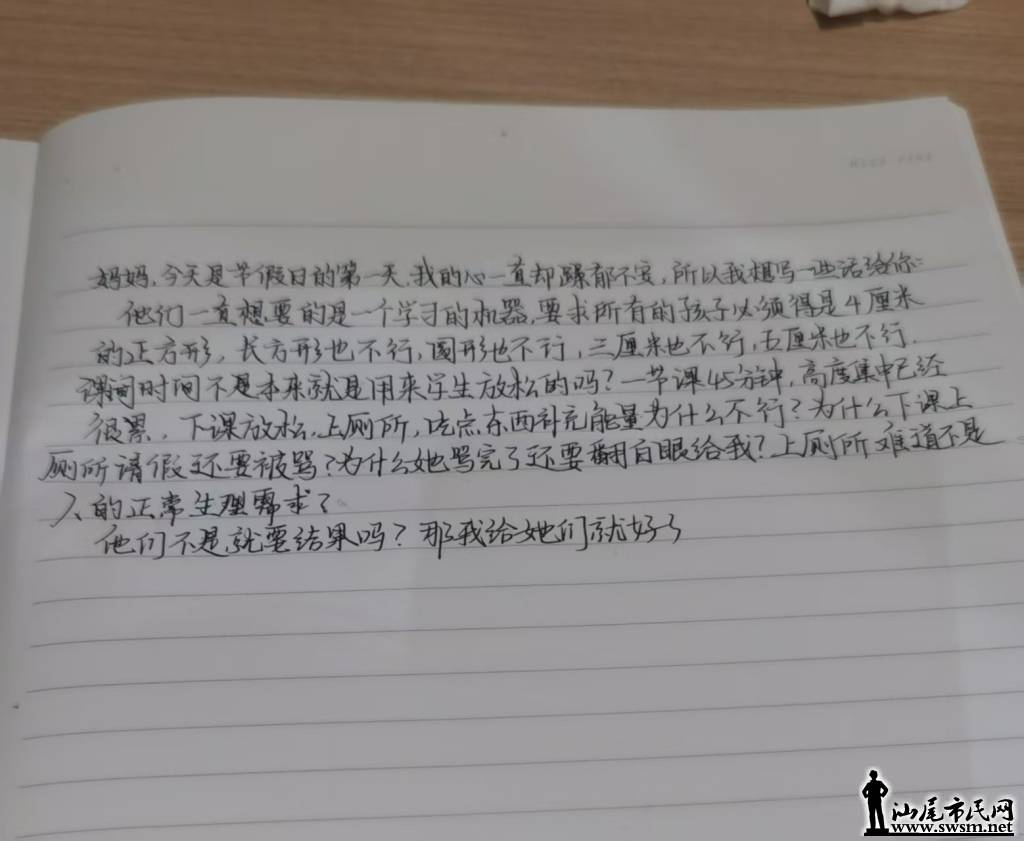 妈妈,今天是节假日的第一天,我的心一直却躁郁不安,所以我想写一些话给你:
他们一直想要的是一个学习的机器,要求所有的孩子必须得是4厘米
的正方形,长方形也不行,圆形也不行,三厘米也不行,五厘米也不行.
课间时间不是本来就是用来学生放松的吗?一节课45分钟,高度集中已经
很累,下课放松,上厕所,吃点东西补充能量为什么不行?为什么下课上
厕所请假还要被骂?为什么她骂完了还要翻白眼给我?上厕所难道不是
人的正常生理需求?
他们不是就要结果吗?那我给她们就好了
汕尾市民网
www.swsm.net